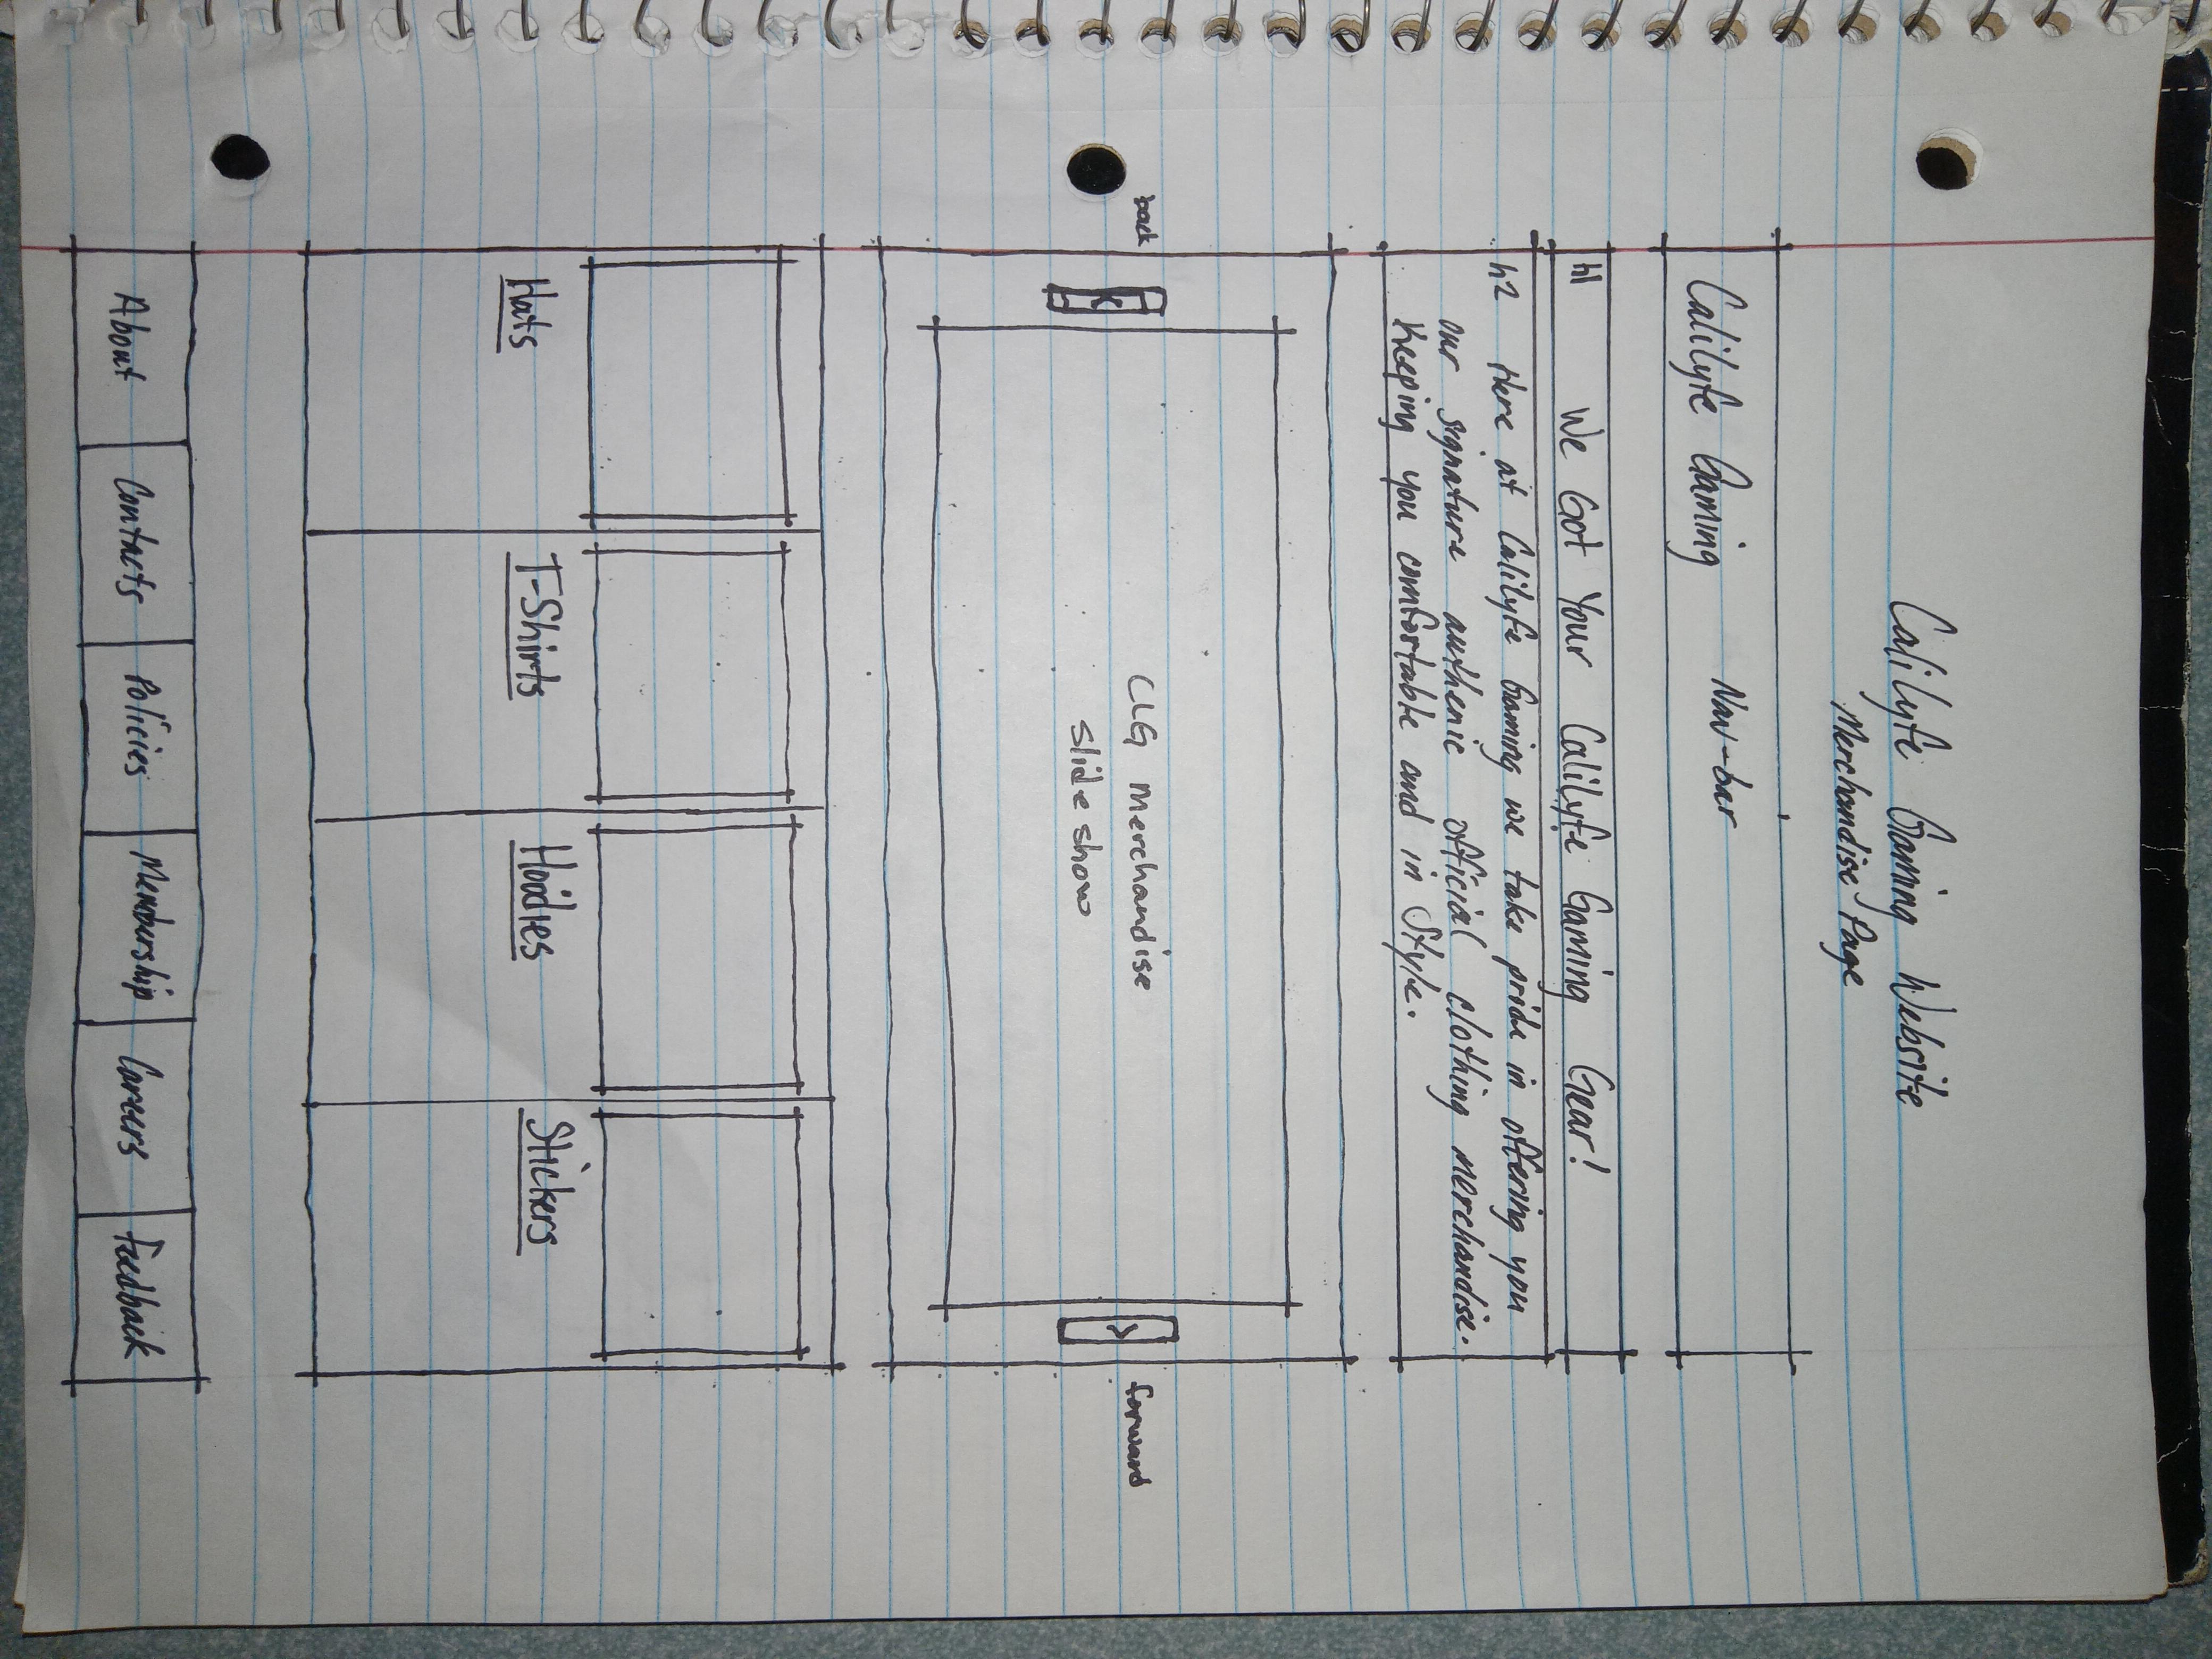 Calilyfe Gaming Website
Merchandise Page
Calilyfe Gaming Nav-bar
h1 We Got Your Calilyfe Gaming Gear!
h2 Here at Calilyfe Gaming we take pride in offering you
our signature authenic official clothing merchandise.
Keeping you comfortable and in Style.
back
<
CLG Merchandise
slide show
>
forward
Hats
T-Shirts
Hoodies
Stickers
About
Contacts
Policies
Membership
Careers
Feedback